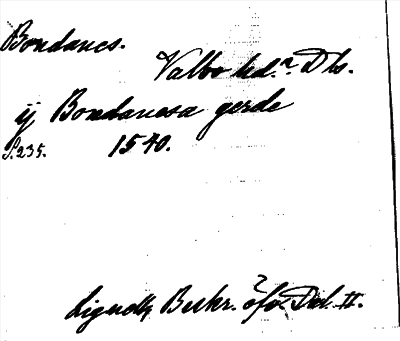 Bondanes.
Valbo hd. Dls.
ij Bondanesa gerde
S. 235. 1540.
Lignell, Beskr. öfv. Dal. II.